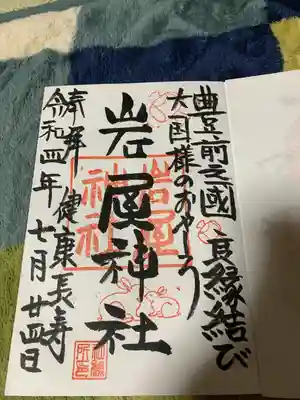 豊前之國 良縁結び
大国様のおやしろ
岩屋神社
岩屋
神社
奉拝 健康長寿
令和四年 七月廿四日